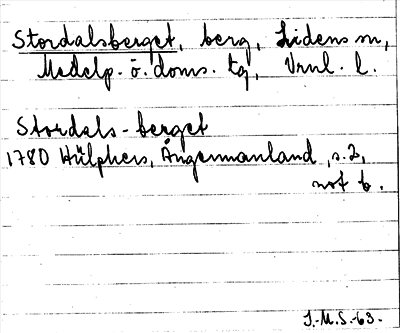 Stordalsberget, berg, Lidens sn,
Medelp. ö. doms. tg, Vrnl. l.
Stordals-berget
1780 Hülphers, Ångermanland, s. 2,
not b.
J.M.S.-63.